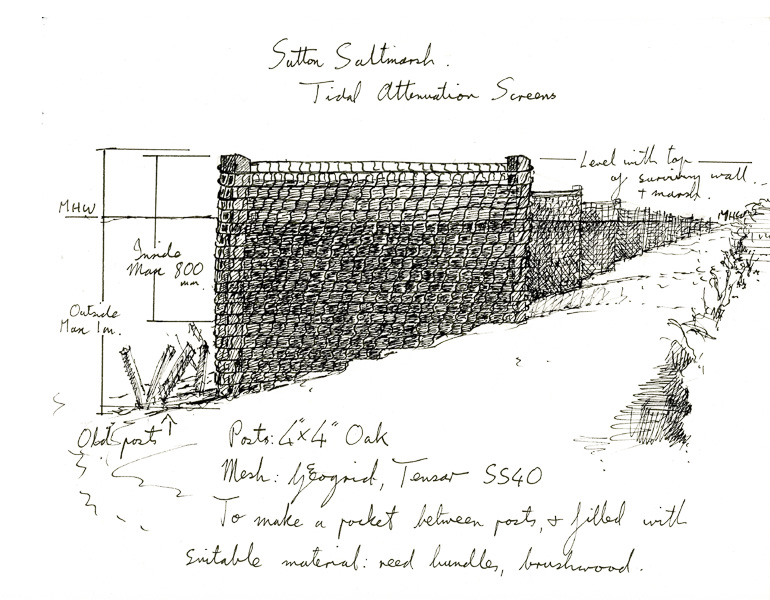 Sutton Saltmarsh.
Tidal Attenuation Screens
Level with top
of surviving wall
+ marsh.
MHW
MHW
Inside
Max 800
mm.
Outside
Max 1m.
Old posts
Posts: 4"x4" Oak
Mesh: Geogrid, Tensar SS40
To make a pocket between posts, & filled with
suitable material: reed bundles, brushwood.